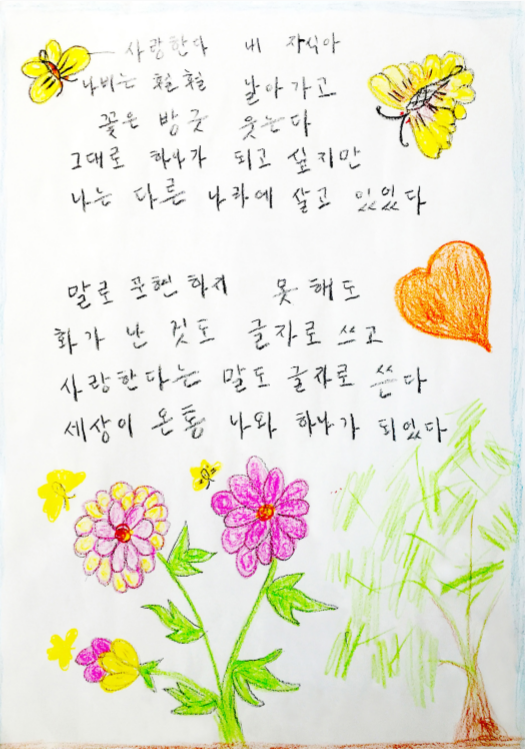 사랑한다 내 자식아
나비는 훨훨 날아가고
꽃은 방긋 웃는다
그대로 하나가 되고 싶지만
나는 다른 나라에 살고 있었다
말로 표현하지 못해도
화가 난 것도 글자로 쓰고
사랑한다는 말도 글자로 쓴다
세상이 온통 나와 하나가 되었다